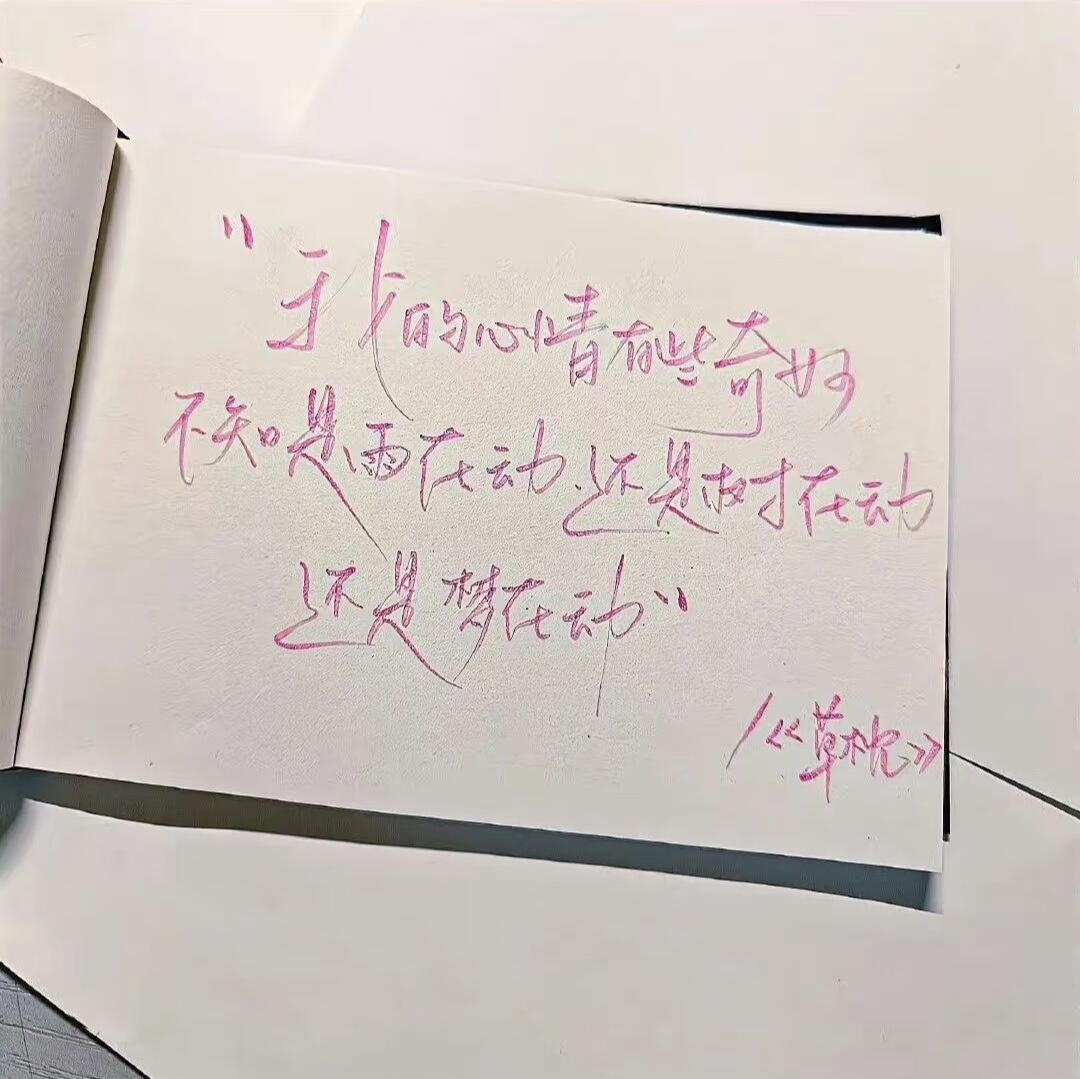 “我的心情有些奇妙
不知是雨在动、还是树在动
还是梦在动”
/《草枕》